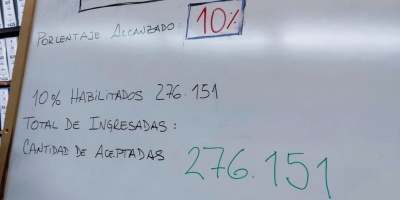 PORCENTAJE ALCANZADO: 10%
10% HABILITADOS 276.151
TOTAL DE INGRESADAS:
CANTIDAD DE ACEPTADAS 276.151